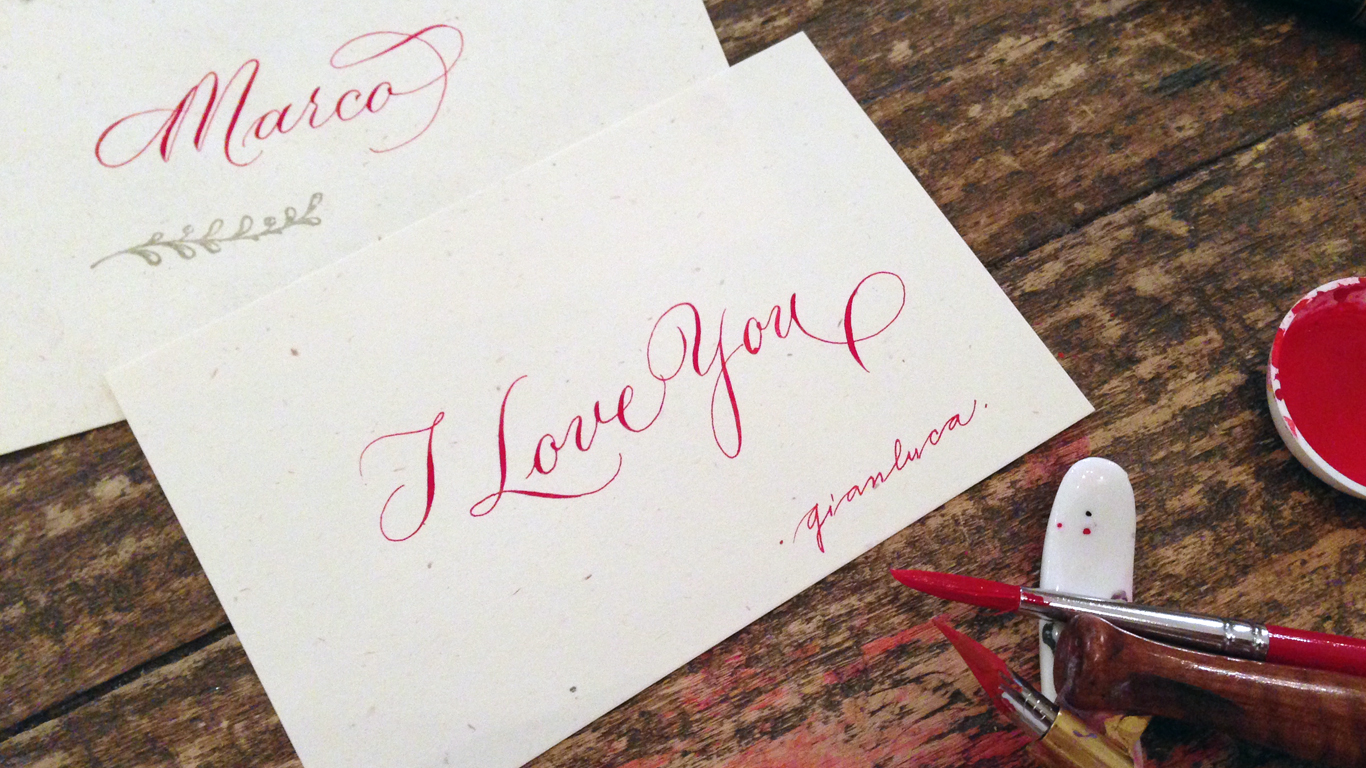 Marco
I Love You
.gianluca.